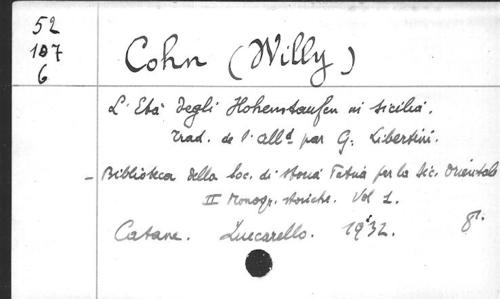 52
107
6
Cohn (Willy)
L'Età degli Hohenstaufen in Sicilia.
Trad. de l'alld par G. Libertini.
- Biblioteca della Soc. di storia Patria per la Sic. Orientale
II Monogr. storiche. Vol 1.
Catane. Zuccarello. 1932. 8º.